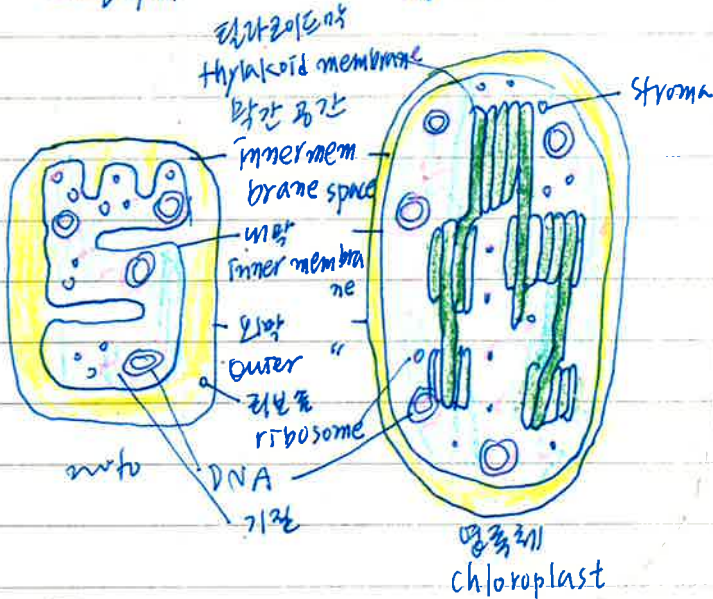 틸라코이드막
thylakoid membrane
막간 공간
innermem
brane space
내막
inner membra
ne
외막
outer "
리보솜
ribosome
DNA
기질
mito
stroma
엽록체
chloroplast